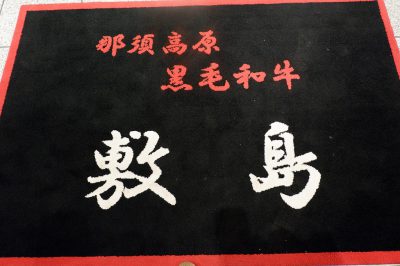 那須高原
黒毛和牛
敷島